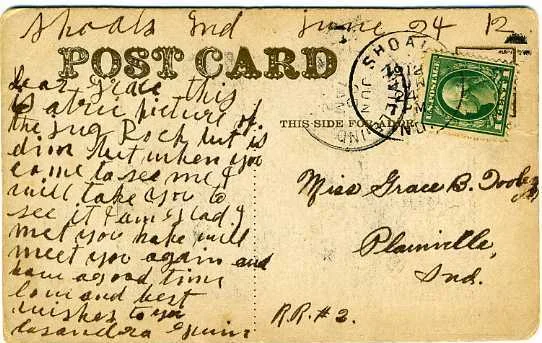 Shoals Ind June 24 12
POST CARD
THIS SIDE FOR ADDRE
SHOAL
IND
1 CENT 1
Dear Grace this
is a true picture of
the Jug Rock but is
dim but when you
come to see me I
will take you to
see it I am glad I
met you hope will
meet you again and
have a good time
love and best
wishes to you
Miss Grace B.
Plainville,
Ind.
R.R. # 2.